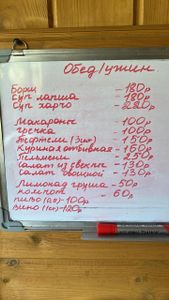 Обед/ужин.
Борщ - 180р
Суп лапша - 180р
Суп харчо - 220р
Макароны - 100р
гречка - 100р
Тефтели (3шт) - 150р
Куриная отбивная - 150р
Пельмени - 250р
Салат из свеклы - 130р
Салат овощной - 130р
Лимонад груша - 50р
компот - 60р
пиво - 100р
Вино - 120р